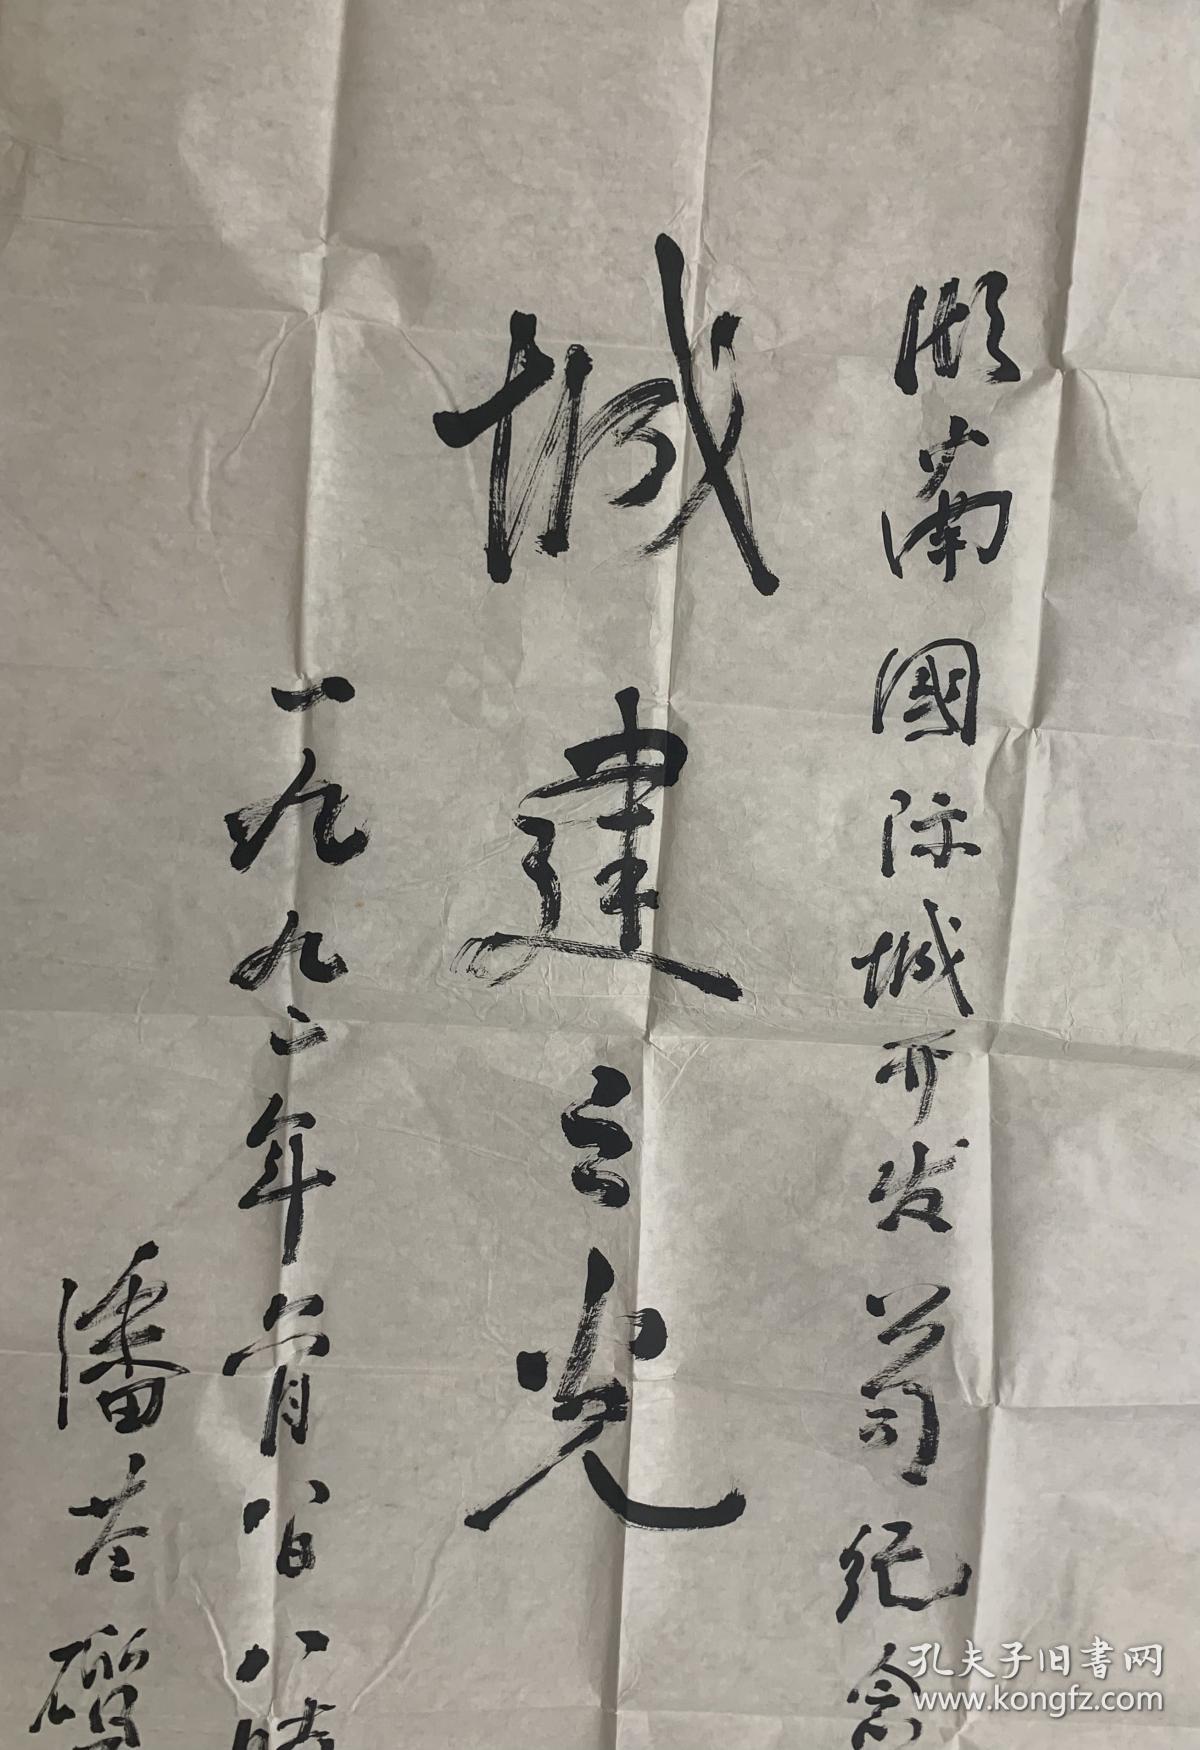 湖南國际城开发公司纪念
城建之光
一九九二年六月八日八時
潘基礩
孔夫子旧書网
www.kongfz.com